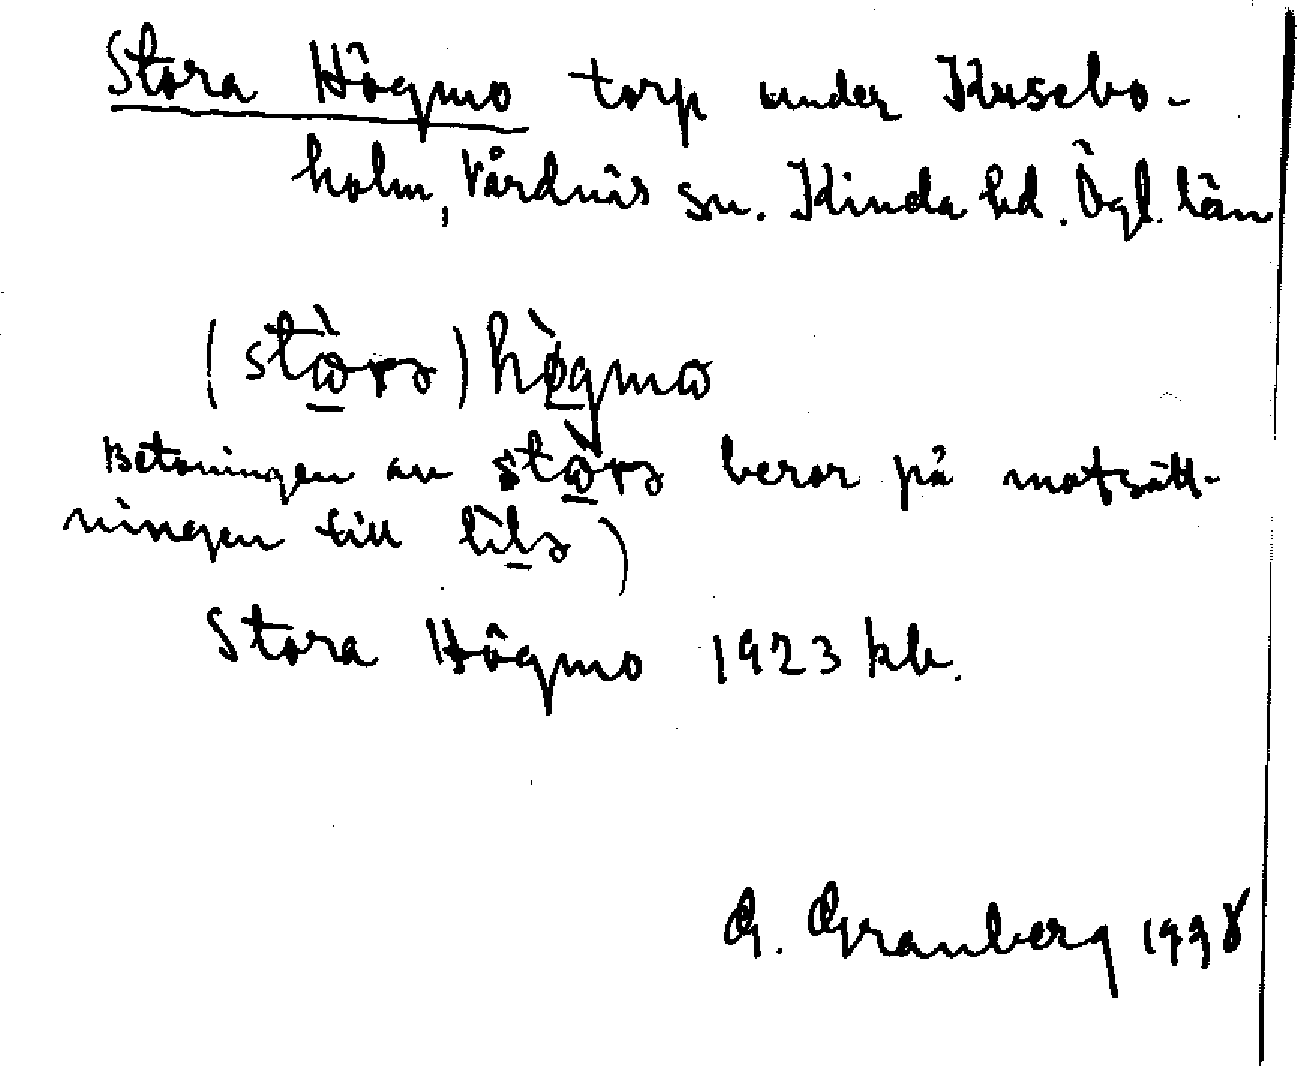 Stora Högmo torp under Kusebo-
holm, Vårdnäs sn. Kinda hd. Ögl. län
(stɷ̀rɘ) hø̀gmɷ
Betoningen av stɷ̀rɘ beror på motsätt-
ningen till lìlɘ)
Stora Högmo 1923 kb.
G. Granberg 1938